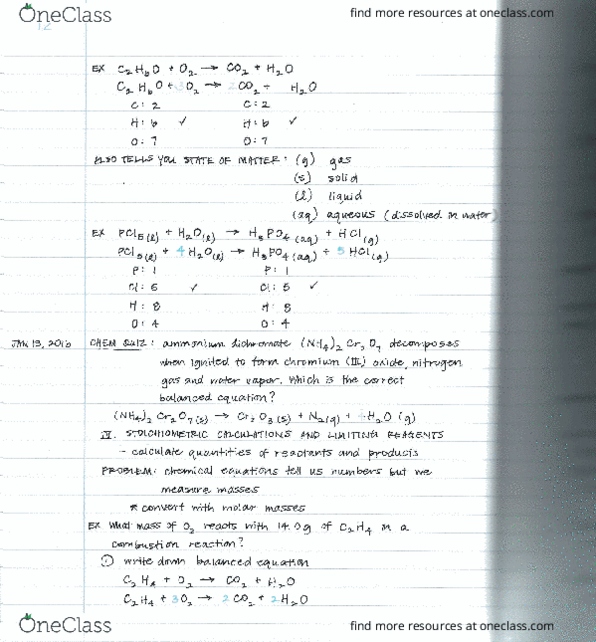 OneClass
find more resources at oneclass.com
12
EX C₂H₆O + O₂ → CO₂ + H₂O
C₂H₆O + 3O₂ → 2CO₂ + H₂O
C: 2 C: 2
H: 6 ✓ H: 6 ✓
O: 7 O: 7
ALSO TELLS YOU STATE OF MATTER: (g) gas
(s) solid
(l) liquid
(aq) aqueous (dissolved in water)
EX PCl₅(l) + H₂O(l) → H₃PO₄(aq) + HCl(g)
PCl₅(l) + 4H₂O(l) → H₃PO₄(aq) + 5HCl(g)
P: 1 P: 1
Cl: 5 ✓ Cl: 5 ✓
H: 8 H: 8
O: 4 O: 4
JAN 13, 2016 CHEM QUIZ: ammonium dichromate (NH₄)₂Cr₂O₇ decomposes
when ignited to form chromium (III) oxide, nitrogen
gas and water vapor. Which is the correct
balanced equation?
(NH₄)₂Cr₂O₇(s) → Cr₂O₃(s) + N₂(g) + 4H₂O(g)
IV. STOICHIOMETRIC CALCULATIONS AND LIMITING REAGENTS
- calculate quantities of reactants and products
PROBLEM: chemical equations tell us numbers but we
measure masses
* convert with molar masses
EX What mass of O₂ reacts with 14.0g of C₂H₄ in a
combustion reaction?
① write down balanced equation
C₂H₄ + O₂ → CO₂ + H₂O
C₂H₄ + 3O₂ → 2CO₂ + 2H₂O
OneClass
find more resources at oneclass.com